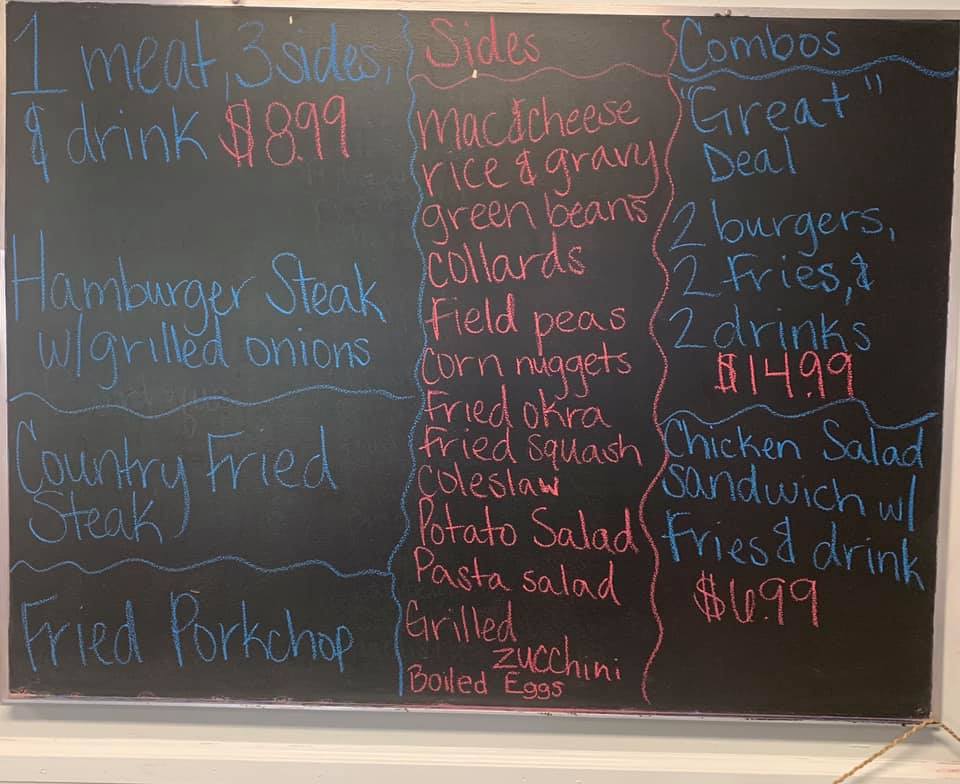 1 meat, 3 sides,
& drink $8.99
Hamburger Steak
w/grilled onions
Country Fried
Steak
Fried Porkchop
Sides
Mac&cheese
rice & gravy
green beans
collards
Field peas
corn nuggets
Fried okra
Fried squash
coleslaw
Potato Salad
Pasta salad
Grilled
zucchini
Boiled Eggs
Combos
"Great"
Deal
2 burgers,
2 Fries, &
2 drinks
$14.99
Chicken Salad
sandwich w/
Fries & drink
$6.99